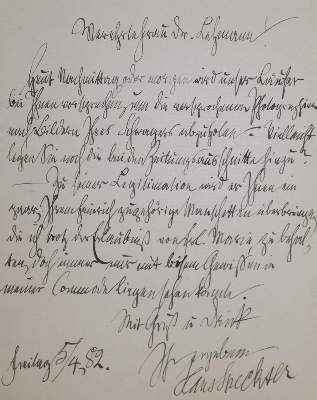 Verehrte Frau Dr. Lehmann!
Heut Nachmittag oder morgen wird unser Laufer
bei Ihnen vorsprechen, um die versprochenen Photographien
nach Bildern Ihres Schwagers abzuholen – Vielleicht
legen Sie noch die beiden Zeitungsausschnitte hinzu?
– Zu seiner Legitimation wird er Ihnen ein
paar, Ihnen zugehörige Manschetten überbringen,
die ich trotz der Erlaubniß von Frl. Marie zu behal-
ten, doch immer nur mit bösem Gewissen in
meiner Commode liegen sehen konnte.
Mit Gruß u Dank
Ihr ergebener
Freitag 5/4 82. Hans Speckter